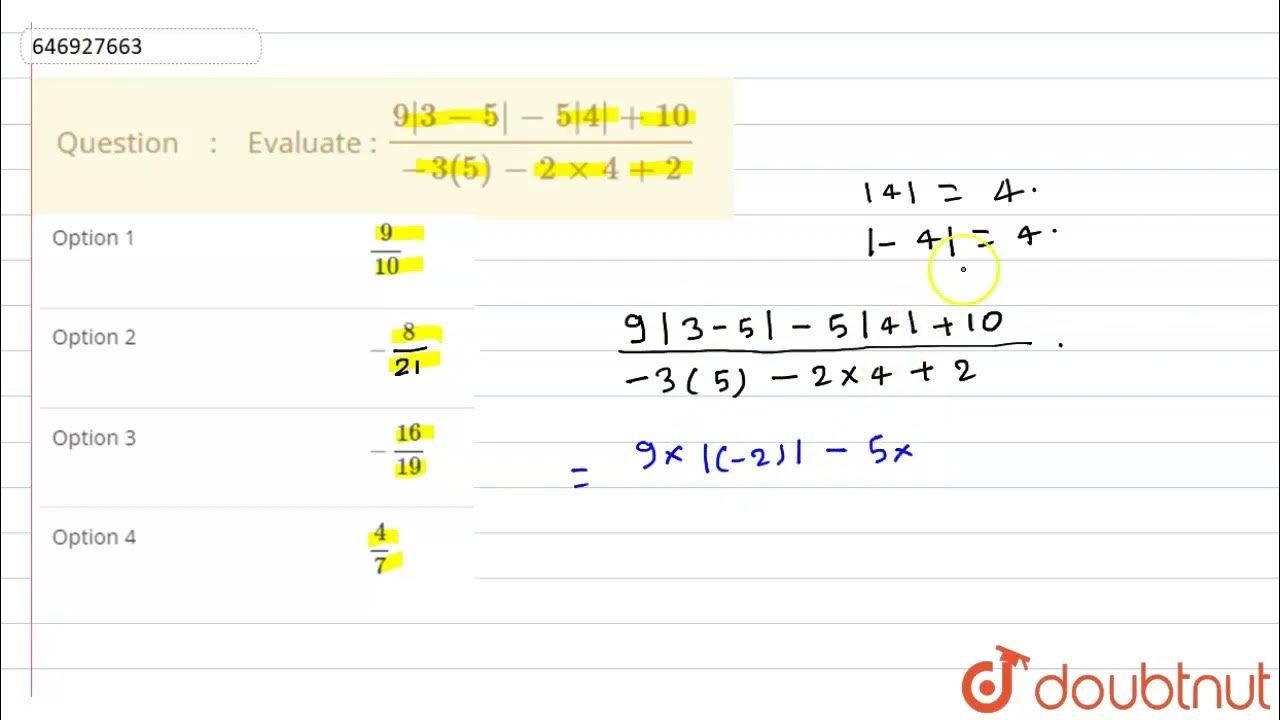 646927663
Question : Evaluate : \frac{9|3 - 5| - 5|4| + 10}{-3(5) - 2 \times 4 + 2}
Option 1 \frac{9}{10}
Option 2 -\frac{8}{21}
Option 3 -\frac{16}{19}
Option 4 \frac{4}{7}
|4| = 4.
|-4| = 4.
\frac{9|3-5| - 5|4| + 10}{-3(5) - 2 \times 4 + 2}.
= 9 \times |(-2)| - 5 \times
doubtnut